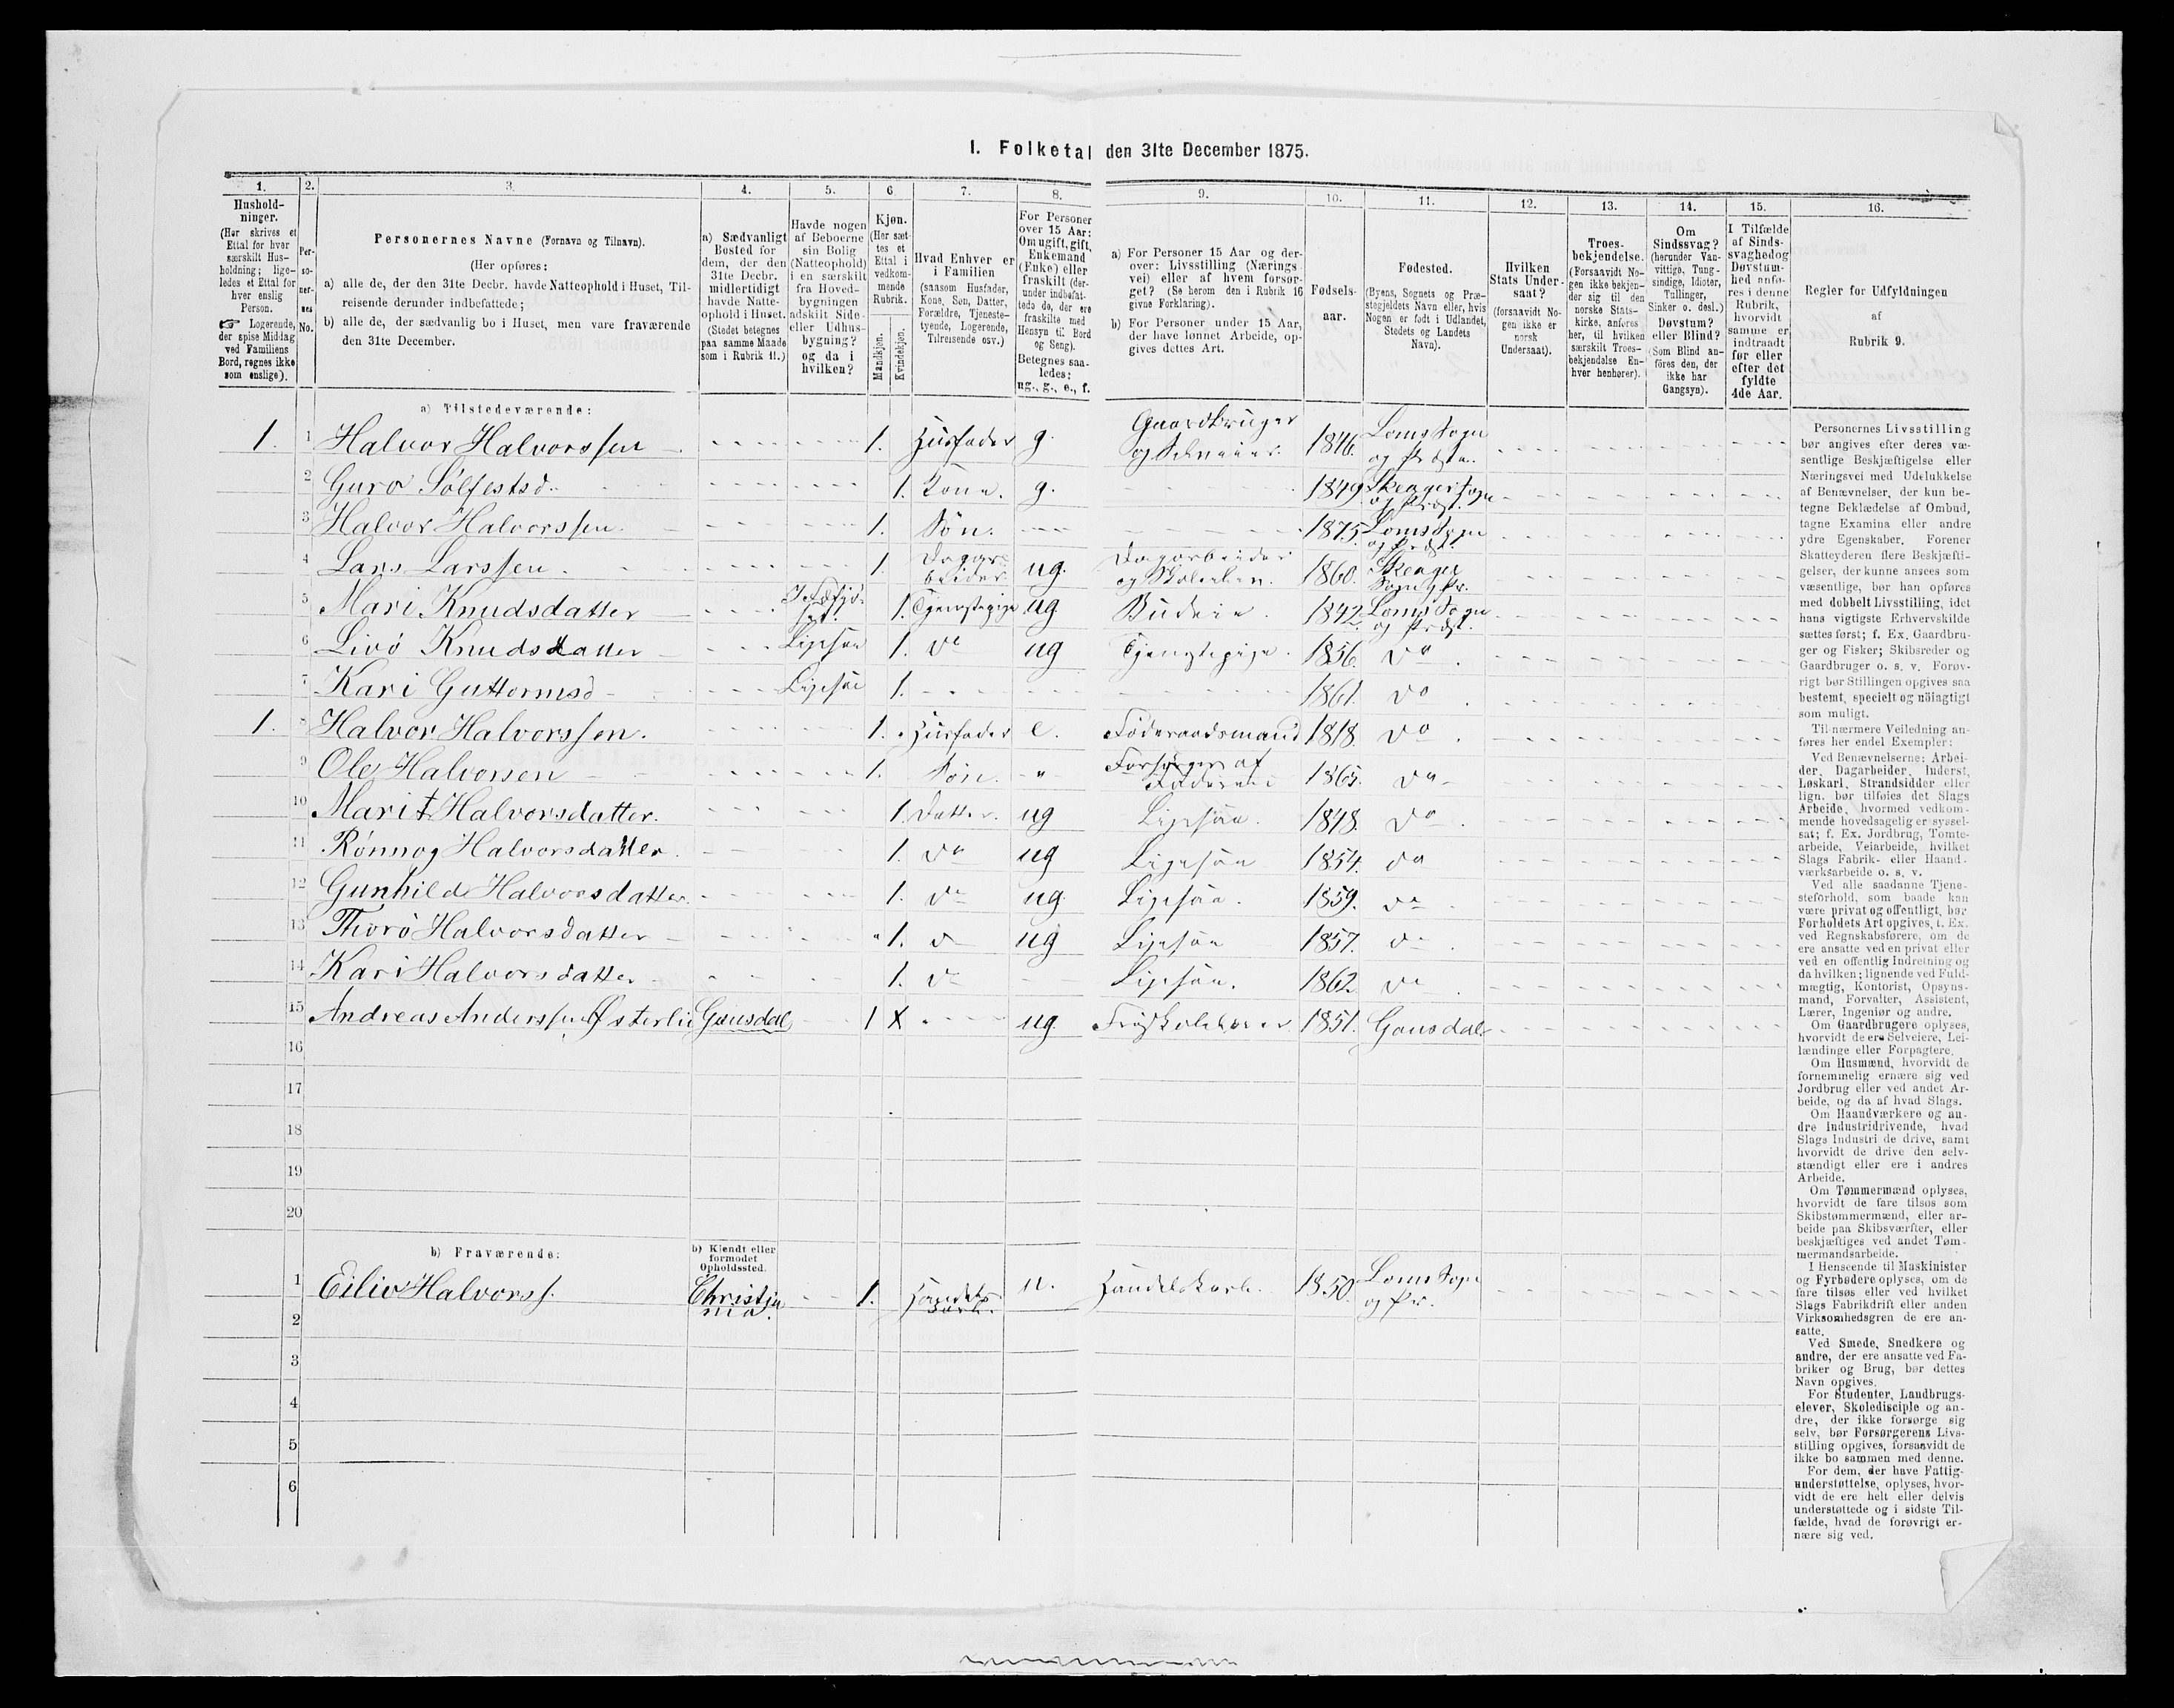 I. Folketal den 31te December 1875.
1. 2. 3. 4. 5. 6. 7. 8. 9. 10. 11. 12. 13. 14. 15. 16.
Hushold-
ninger.
(Her skrives et
Ettal for hver
særskilt Hus-
holdning; lige-
ledes et Ettal for
hver enslig
Person.
☞ Logerende,
der spise Middag
ved Familiens
Bord, regnes ikke
som enslige).
Per-
so-
ner-
nes
No.
Personernes Navne (Fornavn og Tilnavn).
(Her opføres:
a) alle de, der den 31te Decbr. havde Natteophold i Huset, Til-
reisende derunder indbefattede;
b) alle de, der sædvanlig bo i Huset, men vare fraværende
den 31te December.
a) Sædvanligt
Bosted for
dem, der den
31te Decbr.
midlertidigt
havde Natte-
ophold i Huset.
(Stedet betegnes
paa samme Maade
som i Rubrik 11.)
Havde nogen
af Beboerne
sin Bolig
(Natteophold)
i en særskilt
fra Hoved-
bygningen
adskilt Side-
eller Udhus-
bygning?
og da i
hvilken?
Kjøn.
(Her sæt-
tes et
Ettal i
vedkom-
mende
Rubrik.
Mandkjøn.
Kvindekjøn.
Hvad Enhver er
i Familien
(saasom Husfader,
Kone, Søn, Datter,
Forældre, Tjeneste-
tyende, Logerende,
Tilreisende osv.)
For Personer
over 15 Aar:
Om ugift, gift,
Enkemand
(Enke) eller
fraskilt (der-
under indbefat-
tede de, der ere
fraskilte med
Hensyn til Bord
og Seng).
Betegnes saa-
ledes:
ug., g., e., f.
a) For Personer 15 Aar og der-
over: Livsstilling (Nærings-
vei) eller af hvem forsør-
get? (Se herom den i Rubrik 16
givne Forklaring).
b) For Personer under 15 Aar,
der have lønnet Arbeide, op-
gives dettes Art.
Fødsels-
aar.
Fødested.
(Byens, Sognets og Præ-
stegjeldets Navn eller, hvis
Nogen er født i Udlandet,
Stedets og Landets
Navn).
Hvilken
Stats Under-
saat?
(forsaavidt No-
gen ikke er
norsk
Undersaat).
Troes-
bekjendelse.
(Forsaavidt No-
gen ikke bekjen-
der sig til den
norske Stats-
kirke, anføres
her, til hvilken
særskilt Troes-
bekjendelse En-
hver henhører).
Om
Sindssvag?
(herunder Van-
vittige, Tung-
sindige, Idioter,
Tullinger,
Sinker o. desl.)
Døvstum?
eller Blind?
(Som Blind an-
føres den, der
ikke har
Gangsyn).
I Tilfælde
af Sinds-
svaghed og
Døvstum-
hed anfø-
res i denne
Rubrik,
hvorvidt
samme er
indtraadt
før eller
efter det
fyldte
4de Aar.
Regler for Udfyldningen
af
Rubrik 9.
a) Tilstedeværende:
1. 1 Halvor Halvorssen 1. Husfader g. Gaardbruger og Selveier 1846. Loms Sogn og Præstg.
2 Guro Sølfestsd. 1. Kone. g. 1849 Skeager Sogn og Præst.
3 Halvor Halvorssen. 1. Søn. 1875 Loms Sogn og Præst.
4 Lars Larssen. 1. Dagar- beider ug. Dagarbeider 1860. Skeager Sogn og Pr.
5 Mari Knudsdatter 1. Tjenstepige ug Budeie 1842. Loms Sogn og Præst.
6 Livö Knudsdatter Ligesaa 1. do ug Tjenstepige. 1856. do
7 Kari Guttormsd Ligesaa 1. 1861. do
1. 8 Halvor Halvorssen. 1. Husfader e. Föderaadsmand 1818. do
9 Ole Halvorsen 1. Søn. " Forsörges af Faderen 1865. do
10 Marit Halvorsdatter. 1. Datter. ug Ligesaa. 1848. do
11 Rønnog Halvorsdatter. 1. do ug Ligesaa 1854. do
12 Gunhild Halvorsdatter. 1. do ug. Ligesaa. 1859. do
13 Thorö Halvorsdatter 1. do ug Ligesaa 1857. do
14 Kari Halvorsdatter 1. do Ligesaa. 1862. do
15 Andreas Anderssen Østerlie Gausdal 1 X ug. 1851. Gausdal
16
17
18
19
20
b) Fraværende:
b) Kjendt eller
formodet
Opholdssted.
1 Eiliv Halvorss. Christia nia. 1. Handels Karl. u. Handelskarl. 1850. Loms Sogn og Pr.
2
3
4
5
6
Personernes Livsstilling
bør angives efter deres væ-
sentlige Beskjæftigelse eller
Næringsvei med Udelukkelse
af Benævnelser, der kun be-
tegne Beklædelse af Ombud,
tagne Examina eller andre
ydre Egenskaber. Forener
Skatteyderen flere Beskjæfti-
gelser, der kunne ansees som
væsentlige, bør han opføres
med dobbelt Livsstilling, idet
hans vigtigste Erhvervskilde
sættes først; f. Ex. Gaardbru-
ger og Fisker; Skibsreder og
Gaardbruger o. s. v. Forøv-
rigt bør Stillingen opgives saa
bestemt, specielt og nöiagtigt
som muligt.
Til nærmere Veiledning an-
føres her endel Exempler:
Ved Benævnelserne: Arbei-
der, Dagarbeider, Inderst,
Løskarl, Strandsidder eller
lign. bør tilføies det Slags
Arbeide, hvormed vedkom-
mende hovedsagelig er syssel-
sat; f. Ex. Jordbrug, Tomte-
arbeide, Veiarbeide, hvilket
Slags Fabrik- eller Haand-
værksarbeide o. s. v.
Ved alle saadanne Tjene-
steforhold, som baade kan
være privat og offentligt, bør
Forholdets Art opgives, f. Ex.
ved Regnskabsførere, om de
ere ansatte ved en privat eller
ved en offentlig Indretning og
da hvilken; lignende ved Fuld-
mægtig, Kontorist, Opsyns-
mand, Forvalter, Assistent,
Lærer, Ingeniør og andre.
Om Gaardbrugere oplyses,
hvorvidt de ere Selveiere, Lei-
lændinge eller Forpagtere.
Om Husmænd, hvorvidt de
fornemmelig ernære sig ved
Jordbrug eller ved andet Ar-
beide, og da af hvad Slags.
Om Haandværkere og an-
dre Industridrivende, hvad
Slags Industri de drive, samt
hvorvidt de drive den selv-
stændigt eller ere i andres
Arbeide.
Om Tømmermænd oplyses,
hvorvidt de fare tilsøs som
Skibstømmermænd, eller ar-
beide paa Skibsværfter, eller
beskjæftiges ved andet Tøm-
mermandsarbeide.
I Henseende til Maskinister
og Fyrbødere oplyses, om de
fare tilsøs eller ved hvilket
Slags Fabrikdrift eller anden
Virksomhedsgren de ere an-
satte.
Ved Smede, Snedkere og
andre, der ere ansatte ved Fa-
briker og Brug, bør dettes
Navn opgives.
For Studenter, Landbrugs-
elever, Skoledisciple og an-
dre, der ikke forsørge sig
selv, bør Forsørgerens Livs-
stilling opgives, forsaavidt de
ikke bo sammen med denne.
For dem, der have Fattig-
understøttelse, oplyses, hvor-
vidt de ere helt eller delvis
understøttede og i sidste Til-
fælde, hvad de forøvrigt er-
nære sig ved.